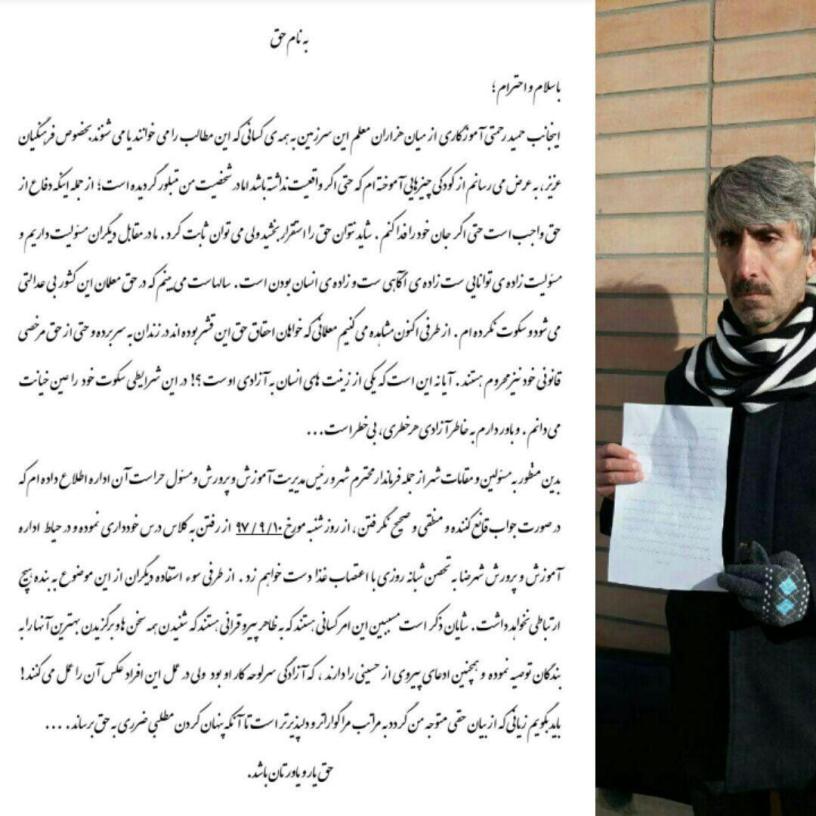 به نام حق
باسلام و احترام ؛
اینجانب حمید رحمتی آموزگاری از میان هزاران معلم این سرزمین به همه ی کسانی که این مطالب را می خوانند یا می شنوند بخصوص فرهنگیان
عزیز، به عرض می رسانم از کودکی چیزهایی آموخته ام که حتی اگر واقعیت نداشته باشد اما در شخصیت من تبلور گردیده است؛ از جمله اینکه دفاع از
حق واجب است حتی اگر جان خود را فدا کنم . شاید نتوان حق را استقرار بخشید ولی می توان ثابت کرد . ما در مقابل دیگران مسئولیت داریم و
مسئولیت زاده ی توانایی ست زاده ی آگاهی ست و زاده ی انسان بودن است . سالهاست می بینم که در حق معلمان این کشور بی عدالتی
می شود و سکوت نکرده ام . از طرفی اکنون مشاهده می کنیم معلمانی که خواهان احقاق حق این قشر بوده اند در زندان به سر برده و حتی از حق مرخصی
قانونی خود نیز محروم هستند . آیا نه این است که یکی از زینت های انسان به آزادی اوست ؟! در این شرایطی سکوت خود را عین خیانت
می دانم . و باور دارم به خاطر آزادی هر خطری، بی خطر است...
بدین منظور به مسئولین و مقامات شهر از جمله فرماندار محترم شهر و رئیس مدیریت آموزش و پرورش و مسئول حراست آن اداره اطلاع داده ام که
در صورت جواب قانع کننده و منطقی و صحیح نگرفتن ، از روز شنبه مورخ ۹۷/۹/۱۰ از رفتن به کلاس درس خودداری نموده و در حیاط اداره
آموزش و پرورش شهرضا به تحصن شبانه روزی با اعتصاب غذا دست خواهم زد . از طرفی سوء استفاده دیگران از این موضوع به بنده هیچ
ارتباطی نخواهد داشت . شایان ذکر است مسببین این امر کسانی هستند که به ظاهر پیرو قرآنی هستند که شنیدن همه سخن ها و برگزیدن بهترین آنها را به
بندگان توصیه نموده و همچنین ادعای پیروی از حسینی را دارند ، که آزادگی سرلوحه کار او بود ولی در عمل این افراد عکس آن را عمل می کنند !
باید بگویم زیانی که از بیان حقی متوجه من گردد به مراتب مرا گواراتر و دلپذیرتر است تا آنکه پنهان کردن مطلبی ضرری به حق برساند . ...
حق یار و یاورتان باشد.